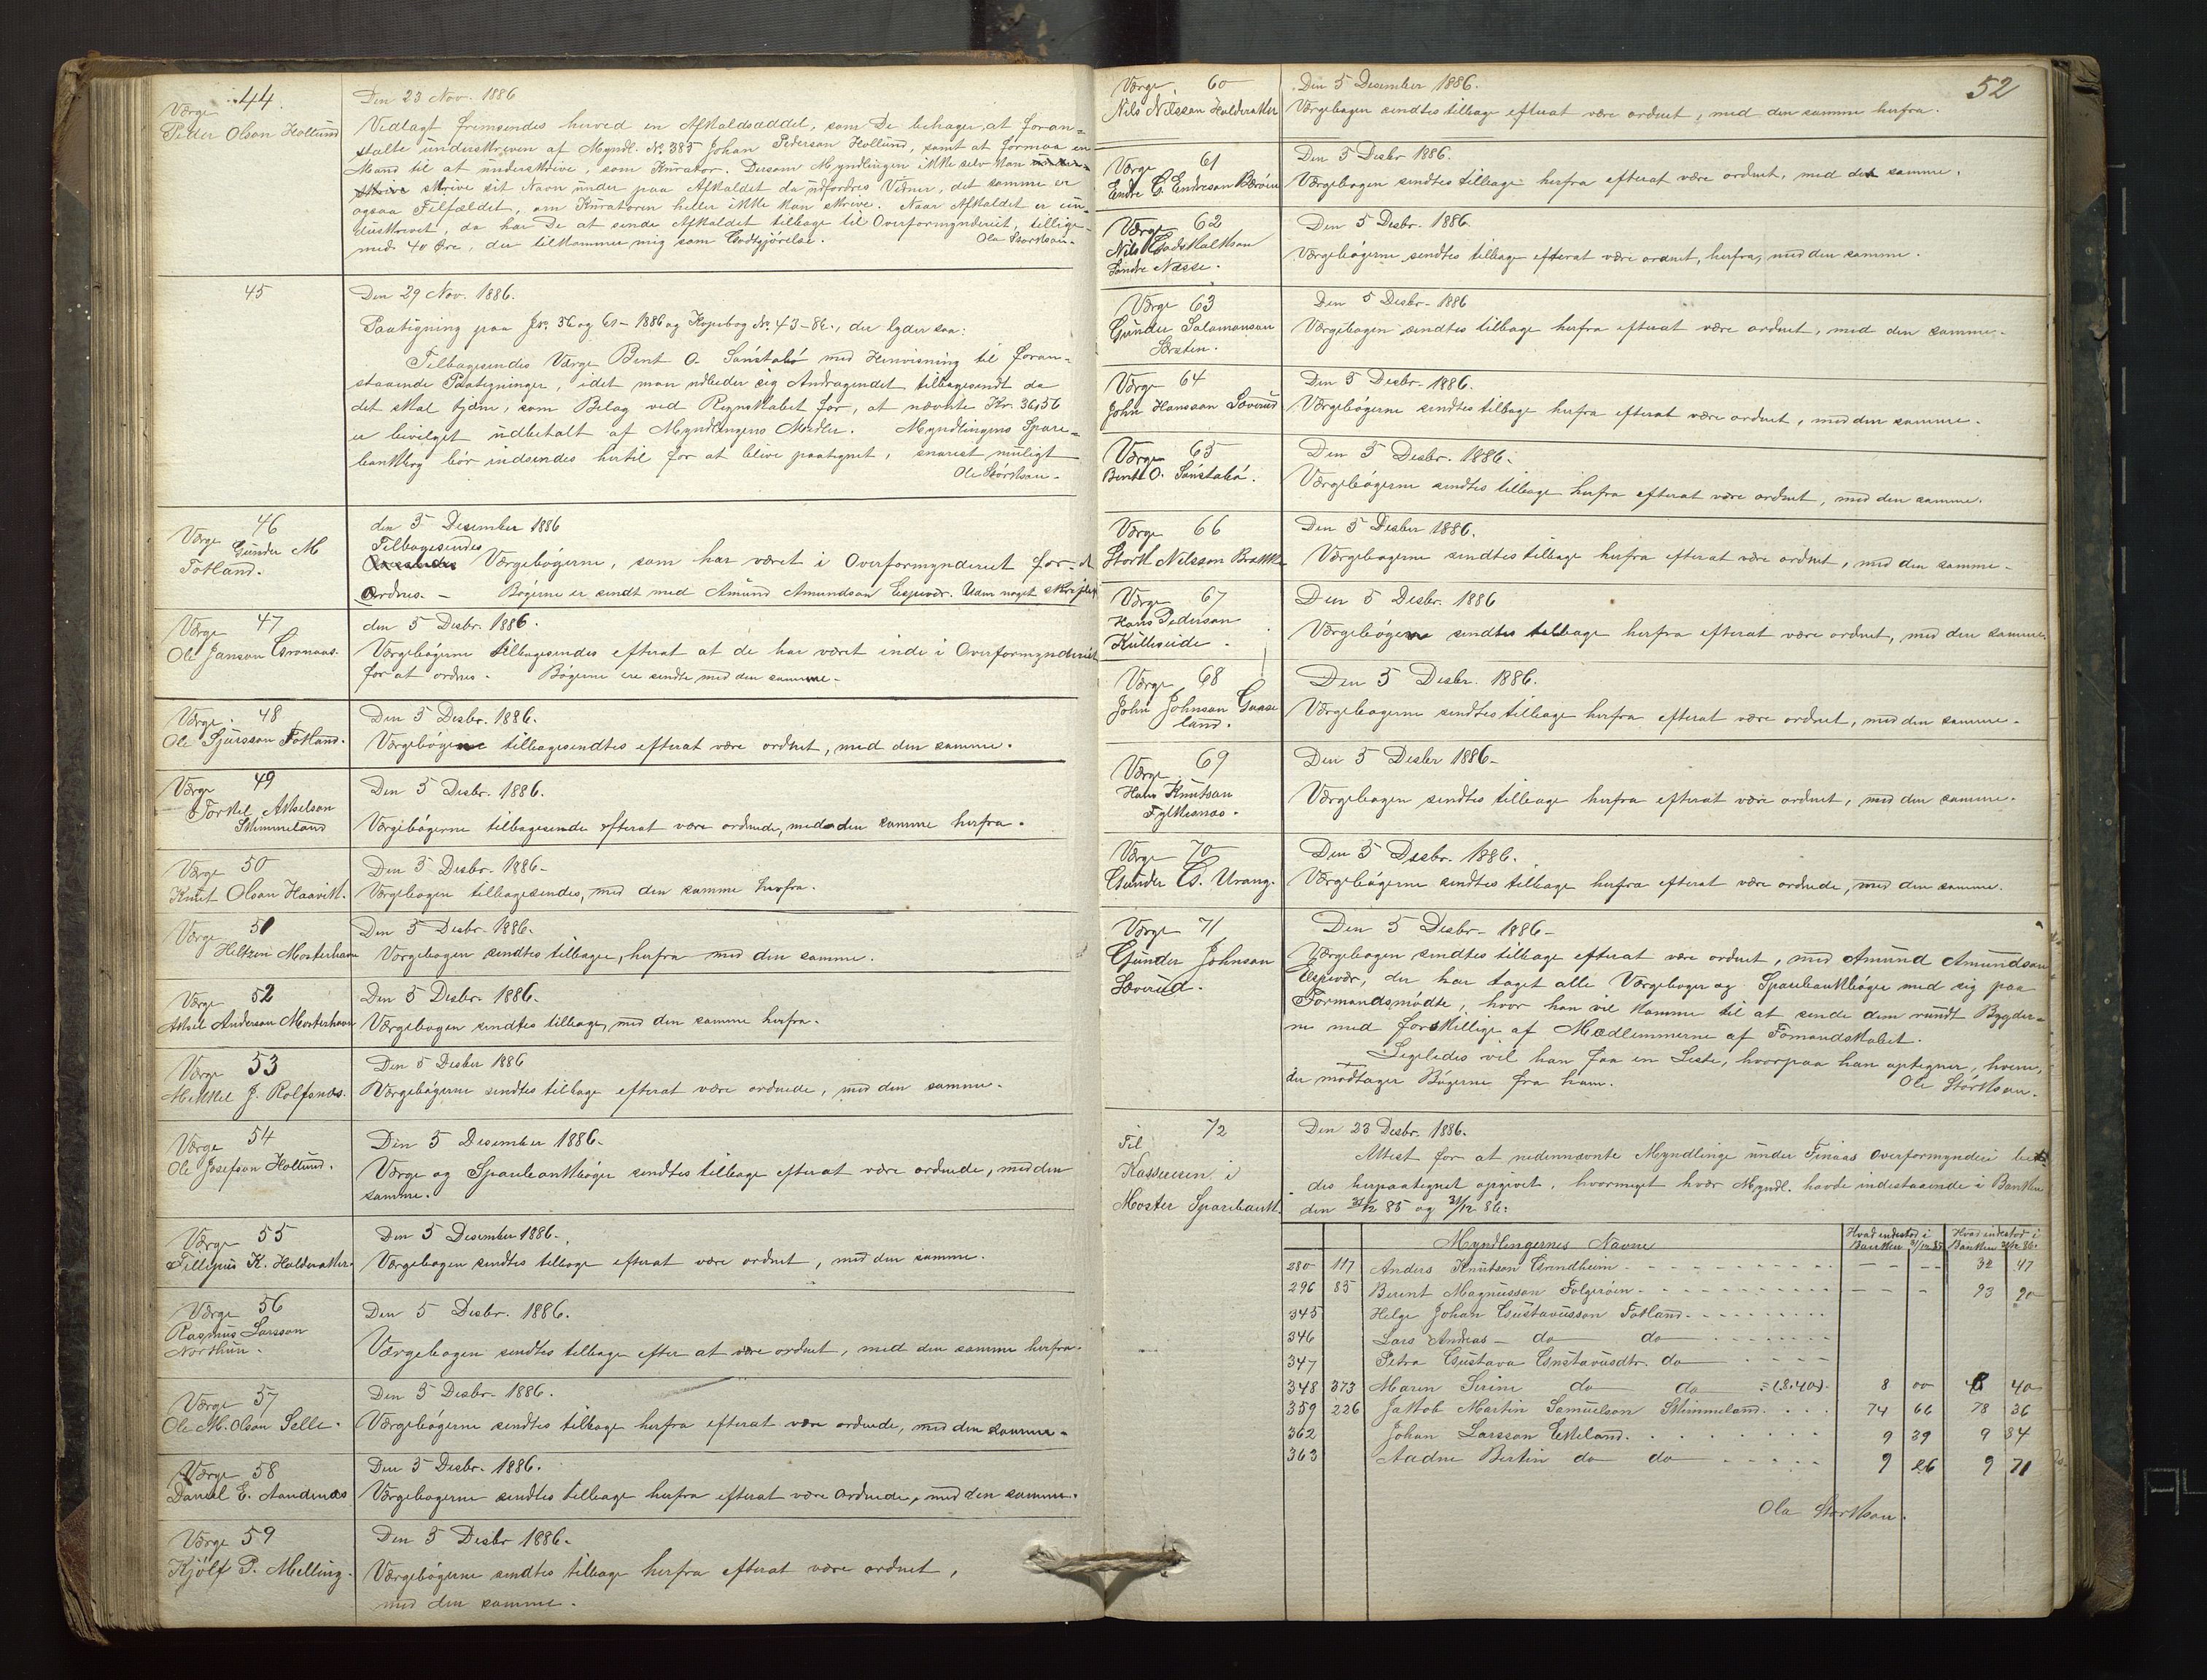 44.
Værge
Peder Olson Hollund
Den 23 Nov. 1886
Vedlagt fremsendes herved en Afkaldsseddel, som De behager, at foran-
stalte underskreven af Myndl. No 385 Johan Pederson Hollund, samt at formaa en
Mand til at underskrive, som Kurator. Dersom Myndlingen ikke selv kan
skrive sit Navn under paa Afkaldet da udfordres Vidner, det samme er
ogsaa Tilfældet, om Kuratoren heller ikke kan skrive. Naar Afkaldet er un-
derskrevet, da har De at sende Afkaldet tilbage til Overformynderiet, tillige-
med 40 Øre, der tilkommer mig som Godtgjörelse.
Ola Storkson.
45
Den 29 Nov. 1886.
Paategning paa Jr. 36 og 61 - 1886 og Kopibog No. 43-86., der lyder saa:
Tilbagesendes Værge Bent O. Sönstabö med Henvisning til foran-
staaende Paategninger, idet man udbeder sig Andragendet tilbagesendt da
det skal tjene, som Bilag ved Regnskabet for, at nævnte Kr. 36,56
er bevilget udbetalt af Myndlingens Midler. Myndlingens Spare-
bankbog bör indsendes hertil for at blive paategnet, snarest muligt
Ole Störkson.
46
Værge
Gunder M
Totland.
den 5 Desember 1886
Tilbagesendes
Værgebögerne, som har været i Overformynderiet for at
Ordnes. - Bögerne er sendt med Amund Amundson Espevær. Uden noget skriftligt
47
Værge
Ole Janson Grønaas.
den 5 Desbr. 1886.
Værgebögerne tilbagesendes efterat at de har været inde i Overformynderiet
for at ordnes. Bögerne ere sendte med den samme.
48
Værge
Ole Sjursson Totland.
Den 5 Desbr. 1886.
Værgebögerne tilbagesendtes efterat være ordnet, med den samme.
49
Værge
Torkel Akselson
Skimmeland
Den 5 Desbr. 1886.
Værgebögerne tilbagesende efterat være ordnede, med den samme herfra.
50
Værge
Knut Olson Haavik.
Den 5 Desbr. 1886.
Værgebogen tilbagesendes, med den samme herfra.
51
Værge
Heltzen Mosterhavn
Den 5 Desbr. 1886.
Værgebogen sendtes tilbage, herfra med den samme.
52
Værge
Aksel Anderson Mosterhavn
Den 5 Desbr. 1886.
Værgebogen sendtes tilbage, med den samme herfra.
53
Værge
Mikkel J. Rolfsnes.
Den 5 Desber 1886
Værgebögerne sendtes tilbage efterat være ordnede, med den samme.
54
Værge
Ole Josefson Hollund.
Den 5 Desember 1886.
Værge og Sparebankböger sendtes tilbage efterat være ordnede, med den
samme.
55
Værge
Tillerius K. Holderaker.
Den 5 Desember 1886.
Værgebogen sendtes tilbage efterat være ordnet, med den samme.
56
Værge
Rasmus Larsson
Northun.
Den 5 Desbr. 1886.
Værgebogen sendtes tilbage efter at være ordnet, med den samme herfra.
57
Værge
Ole M. Olson Selle.
Den 5 Desbr. 1886.
Værgebögerne sendtes tilbage herfra efterat være ordnede, med den samme.
58
Værge
Daniel E. Aandenes
Den 5 Desbr. 1886.
Værgebogerne sendtes tilbage herfra efterat være Ordnede, med den samme.
59
Værge
Kjölf P. Melling.
Den 5 Desbr 1886.
Værgebögerne sendtes tilbage herfra efterat være ordnet,
med den samme.
52
60
Værge
Nils Nilsson Holderaker
Den 5 Desember 1886.
Værgebogen sendtes tilbage efterat være ordnet, med den samme herfra.
61
Værge
Endre E. Endreson Børøen
Den 5 Desbr 1886.
Værgebogen sendtes tilbage herfra efterat være ordnet, med den samme.
62
Værge
Nils Godskalkson
Söndre Næsse.
Den 5 Desbr. 1886.
Værgebögerne sendtes tilbage efterat være ordnet, herfra, med den samme.
63
Værge
Gunder Salamonson
Den 5 Desbr. 1886
Værgebogen sendtes tilbage herfra efterat være ordnet, med den samme.
64
Værge
John Hansson Sæverud
Den 5 Desbr. 1886.
Værgebögerne sendtes tilbage herfra efterat være ordnet, med den samme.
65
Værge
Bent O. Sönstabö.
Den 5 Desbr. 1886.
Værgebögerne sendtes tilbage herfra efterat være ordnet, med den samme.
66
Værge
Störk Nilsson Brekke
Den 5 Desber 1886.
Værgebogerne sendtes tilbage herfra efterat være ordnet, med den samme.
67
Værge
Hans Pederson
Kulleseide.
Den 5 Desbr. 1886
Værgebögerne sendtes tilbage herfra efterat være ordnet, med den samme.
68
Værge
John Johnson Gaase
land.
Den 5 Desbr. 1886.
Værgebogerne sendtes tilbage herfra efterat være ordnet, med den samme.
69
Værge
Hans Knutson
Fylkesnæs.
Den 5 Desber 1886.
Værgebogen sendtes tilbage herfra efterat være ordnet, med den samme.
70
Værge
Gunder G. Urang.
Den 5 Desbr. 1886.
Værgebögerne sendtes tilbage herfra efterat være ordnede, med den samme.
71
Værge
Gunder Johnson
Sæverud.
Den 5 Desbr. 1886.
Værgebogen sendtes tilbage efterat være ordnet, med Amund Amundson
Espevær, der har taget alle Værgeboger og Sparebankböger med sig paa
Formandsmödte, hvor han vil komme til at sende dem rundt Bygder-
ne med forskillige af Medlemmerne af Fomandskabet.
Ligeledes vil han faa en Liste, hvorpaa han optegner, hvem,
der modtager Bögerne fra ham.
Ole Störkson.
72
Til
Kassereren i
Moster Sparebank.
Den 23 Desbr. 1886.
Attest for at nedennævnte Myndlinge under Finaas Overformynderi
des herpaategnet opgivet, hvormeget hvær Myndl. havde indestaaende i Banken
den 31/12 85 og 31/12 86:
Myndlingernes Navne
Hvad indestod i Banken 31/12 85
Hvad indestod i Banken 31/12 86.
280 117 Anders Knutson Grindheim - - - 32 47
296 85 Berent Magnusson Folgeröen - - - 93 90
345 Helge Johan Gustavusson Totland
346 Lars Andreas - do do
347 Petra Gustava Gustavusdtr. do
348 373 Maren Serine do do = (8.40) 8 00 8 40
359 226 Jakob Martin Samuelson Skimmeland. 74 66 78 36
362 Johan Larsson Ekeland. 9 39 9 84
363 Aadne Bertin do do 9 26 9 71
Ola Storkson.